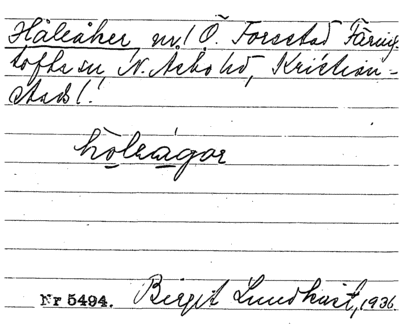 Håleåker nr 1 Ö. Forestad Färing-
tofta sn N. Åsbo hd, Kristian-
stads l.
hȯleågor
Nr 5494. Birgit Lundkvist, 1936.